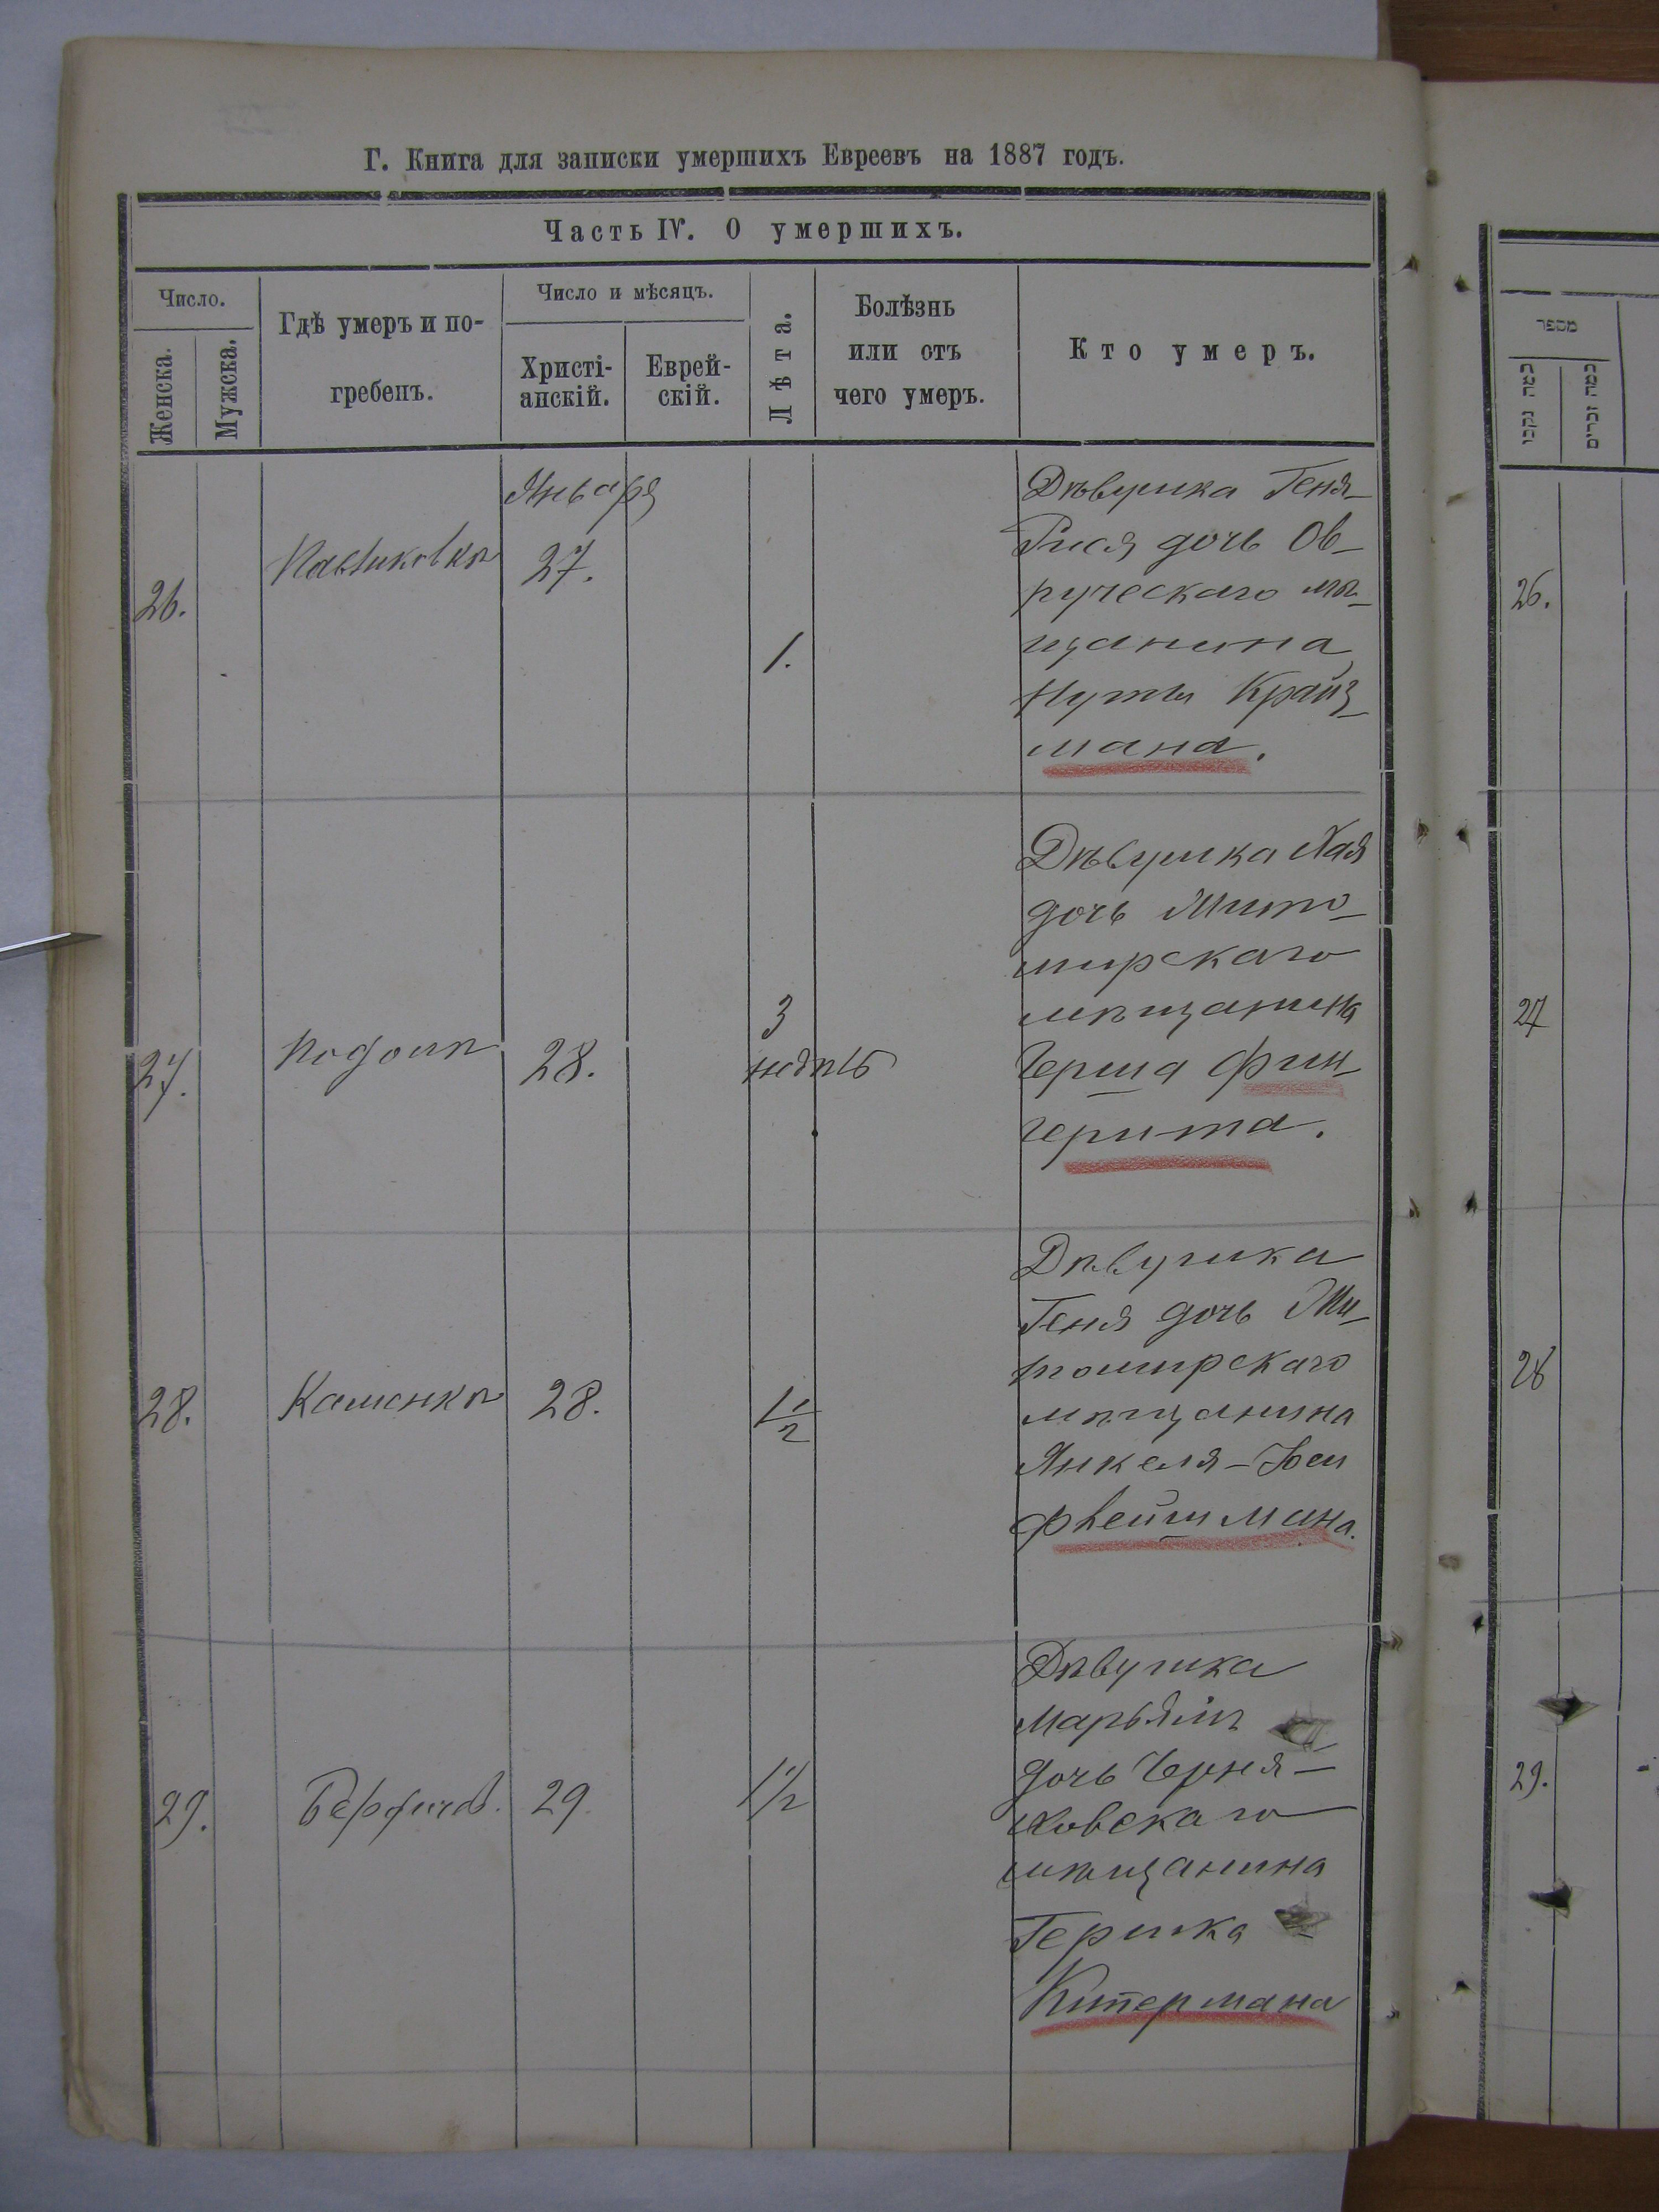 Г. Книга для записки умершихъ Евреевъ на 1887 годъ.
Часть IV. О умершихъ.
Число.
Женска.
Мужска.
Гдѣ умеръ и по-
гребенъ.
Число и мѣсяцъ.
Христі-
анскій.
Еврей-
скій.
Лѣта.
Болѣзнь
или отъ
чего умеръ.
Кто умеръ.
26.
Января
27.
1.
Дѣвушка Геня-
Рися дочь Ов-
ручскаго мѣ-
щанина
Нуты Крайз-
мана.
27.
Подолѣ
28.
3
недѣль
Дѣвушка Хая
дочь Жито-
мирскаго
мѣщанина
Герша Фин-
герита.
28.
Каменкѣ
28.
1 1/2
Дѣвушка
Геня дочь Жи-
томирскаго
мѣщанина
Янкеля-
Фвейшмана.
29.
Бердичев.
29
1 1/2
Дѣвушка
Марьямъ
дочь Черня-
ховскаго
мѣщанина
Гершка
Китермана
מספר
26.
27
28
29.